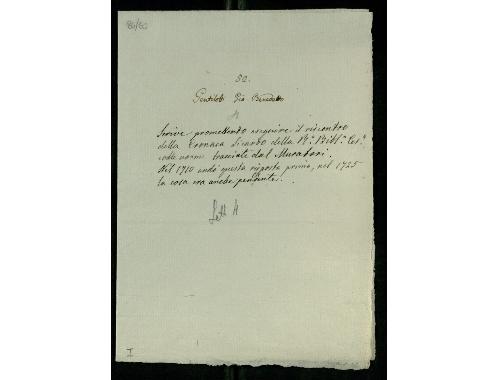 80/80
80.
Gentilotti Gio. Benedetto
Scrive promettendo eseguire il riscontro
della Cronaca Sicardo della Bibl.
colle norme tracciate dal Muratori.
Nel 1710 andò questa risposta prima, nel 1725
la cosa era anche pendente.
Lett
I